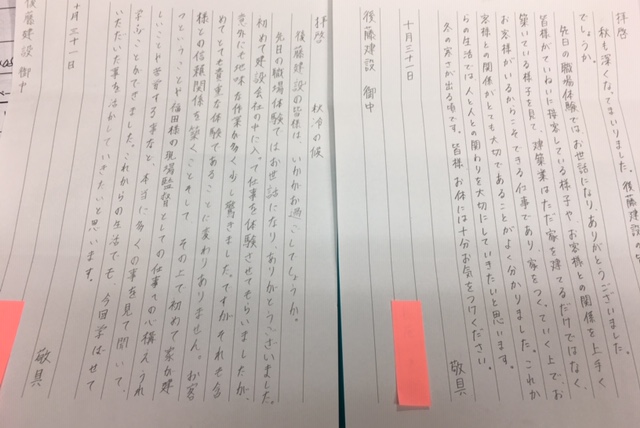 拝啓
秋も深くなってまいりました。後藤建設の皆
でしょうか。
先日の職場体験ではお世話になり、ありがとうございました。
皆様がていねいに接客している様子や、お客様との関係を上手く
築いている様子を見て、建築業はただ家を建てるだけではなく、
お客様がいるからこそできる仕事であり、家をつくっていく上で、お
客様との関係がとても大切であることがよく分かりました。これか
らの生活では人と人との関わりを大切にしていきたいと思います。
冬の寒さが出る頃です。皆様お体には十分お気をつけください。
敬具
十月三十一日
後藤建設 御中
拝啓 秋冷の候
後藤建設の皆様は、いかがお過ごしでしょうか。
先日の職場体験ではお世話になり、ありがとうございました。
初めて建設会社の中に入って仕事を体験させてもらいましたが、
意外にも地味な作業が多く少し驚きました。ですがそれも含
めてとても貴重な体験であることに変わりありません。お客
様との信頼関係を築くこと、そして その上で初めて家が建
つということや福田様の現場監督としての仕事の心構え、うれ
しいことや苦労する事など、本当に多くの事を見て聞いて、
学ぶことができました。これからの生活でも、今回学ばせて
いただいた事を活かしていきたいと思います。
敬具
十月三十一日
後藤建設 御中